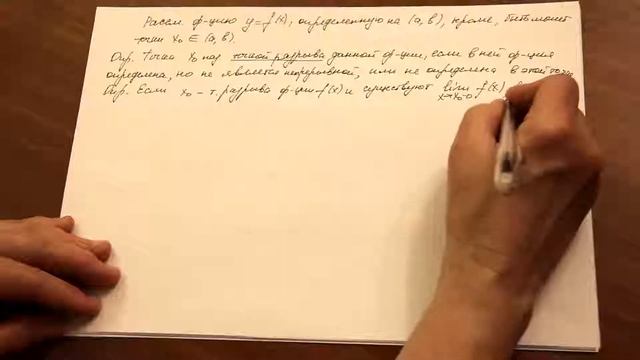 Рассм. ф-цию y=f(x), определенную на (a, b), кроме, быть может
точки x₀ ∈ (a, b).
Опр. Точка x₀ наз. точкой разрыва данной ф-ции, если в ней ф-ция
определена, но не является непрерывной, или не определена в этой точке
Опр. Если x₀ - т. разрыва ф-ции f(x) и существуют lim f(x)
x→x₀-0